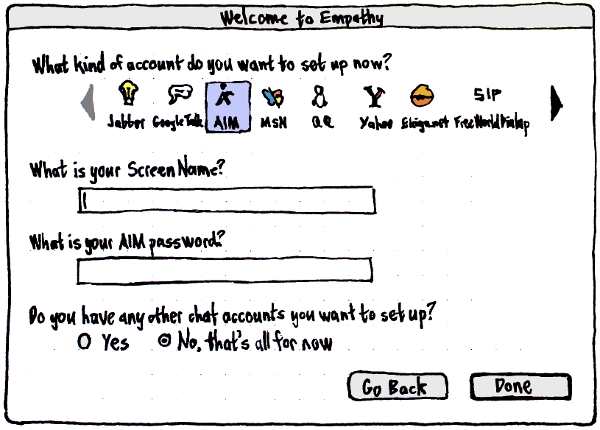 Welcome to Empathy
What kind of account do you want to set up now?
Jabber Google Talk AIM MSN QQ Yahoo SIP Free World Dialup
What is your Screen Name?
What is your AIM password?
Do you have any other chat accounts you want to set up?
Yes No, that's all for now
Go Back Done